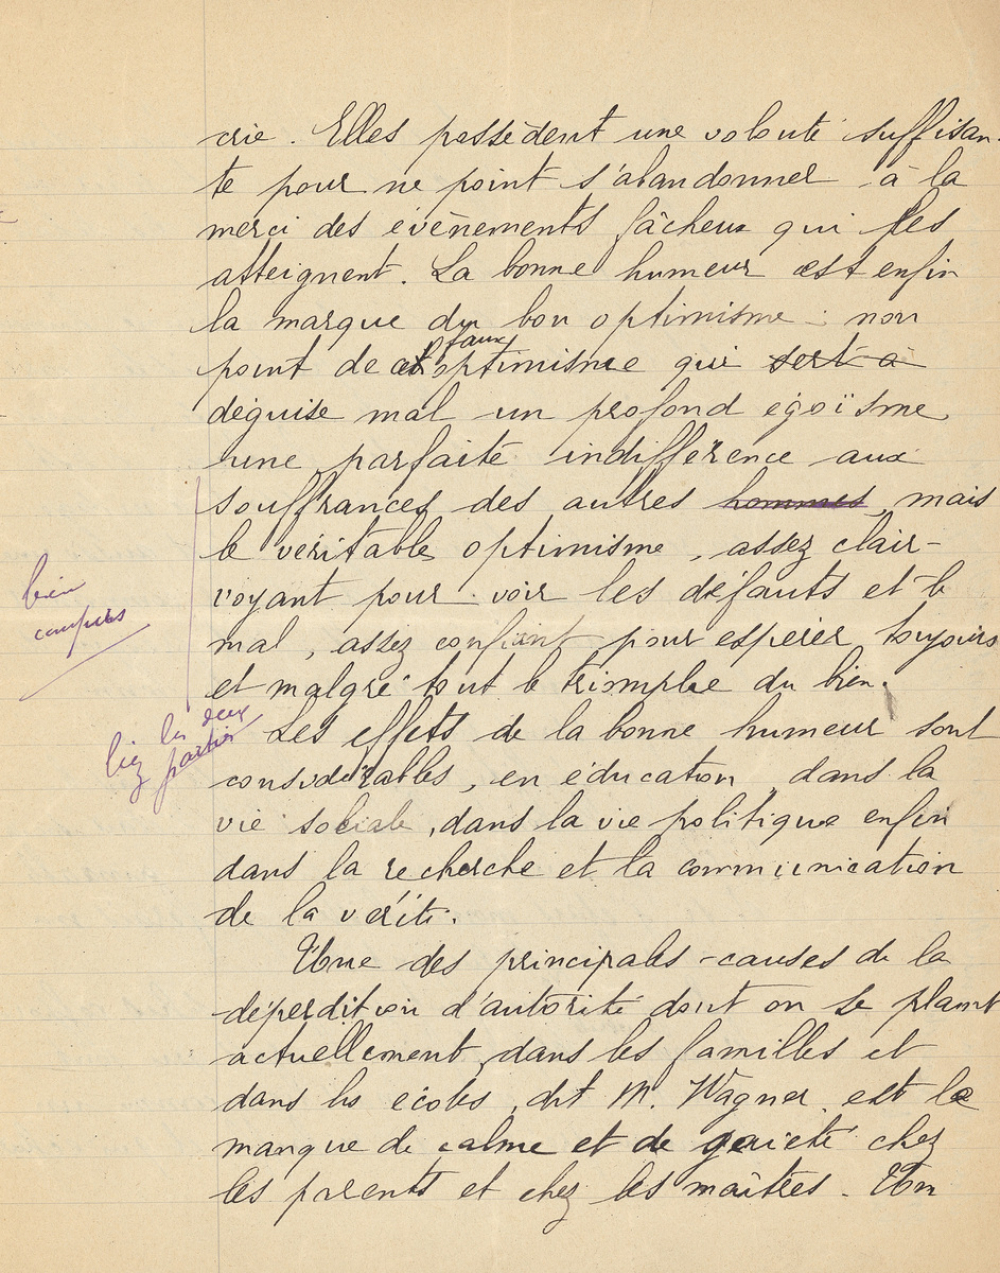 crie. Elles possèdent une volonté suffisan-
te pour ne point s'abandonner à la
merci des évènements fâcheux qui les
atteignent. La bonne humeur est enfin
la marque du bon optimisme : non
point de cet faux optimisme qui sert à
déguise mal un profond égoïsme
une parfaite indifférence aux
souffrances des autres hommes, mais
le véritable optimisme, assez clair-
voyant pour voir les défauts et le
mal, assez confiant pour espérer toujours
et malgré tout le triomphe du bien.
bien
compris
liez les deux
parties
Les effets de la bonne humeur sont
considérables, en éducation, dans la
vie sociale, dans la vie politique enfin
dans la recherche et la communication
de la vérité.
Une des principales causes de la
déperdition d'autorité dont on se plaint
actuellement, dans les familles et
dans les écoles, dit M. Wagner, est le
manque de calme et de gaieté chez
les parents et chez les maîtres. Un